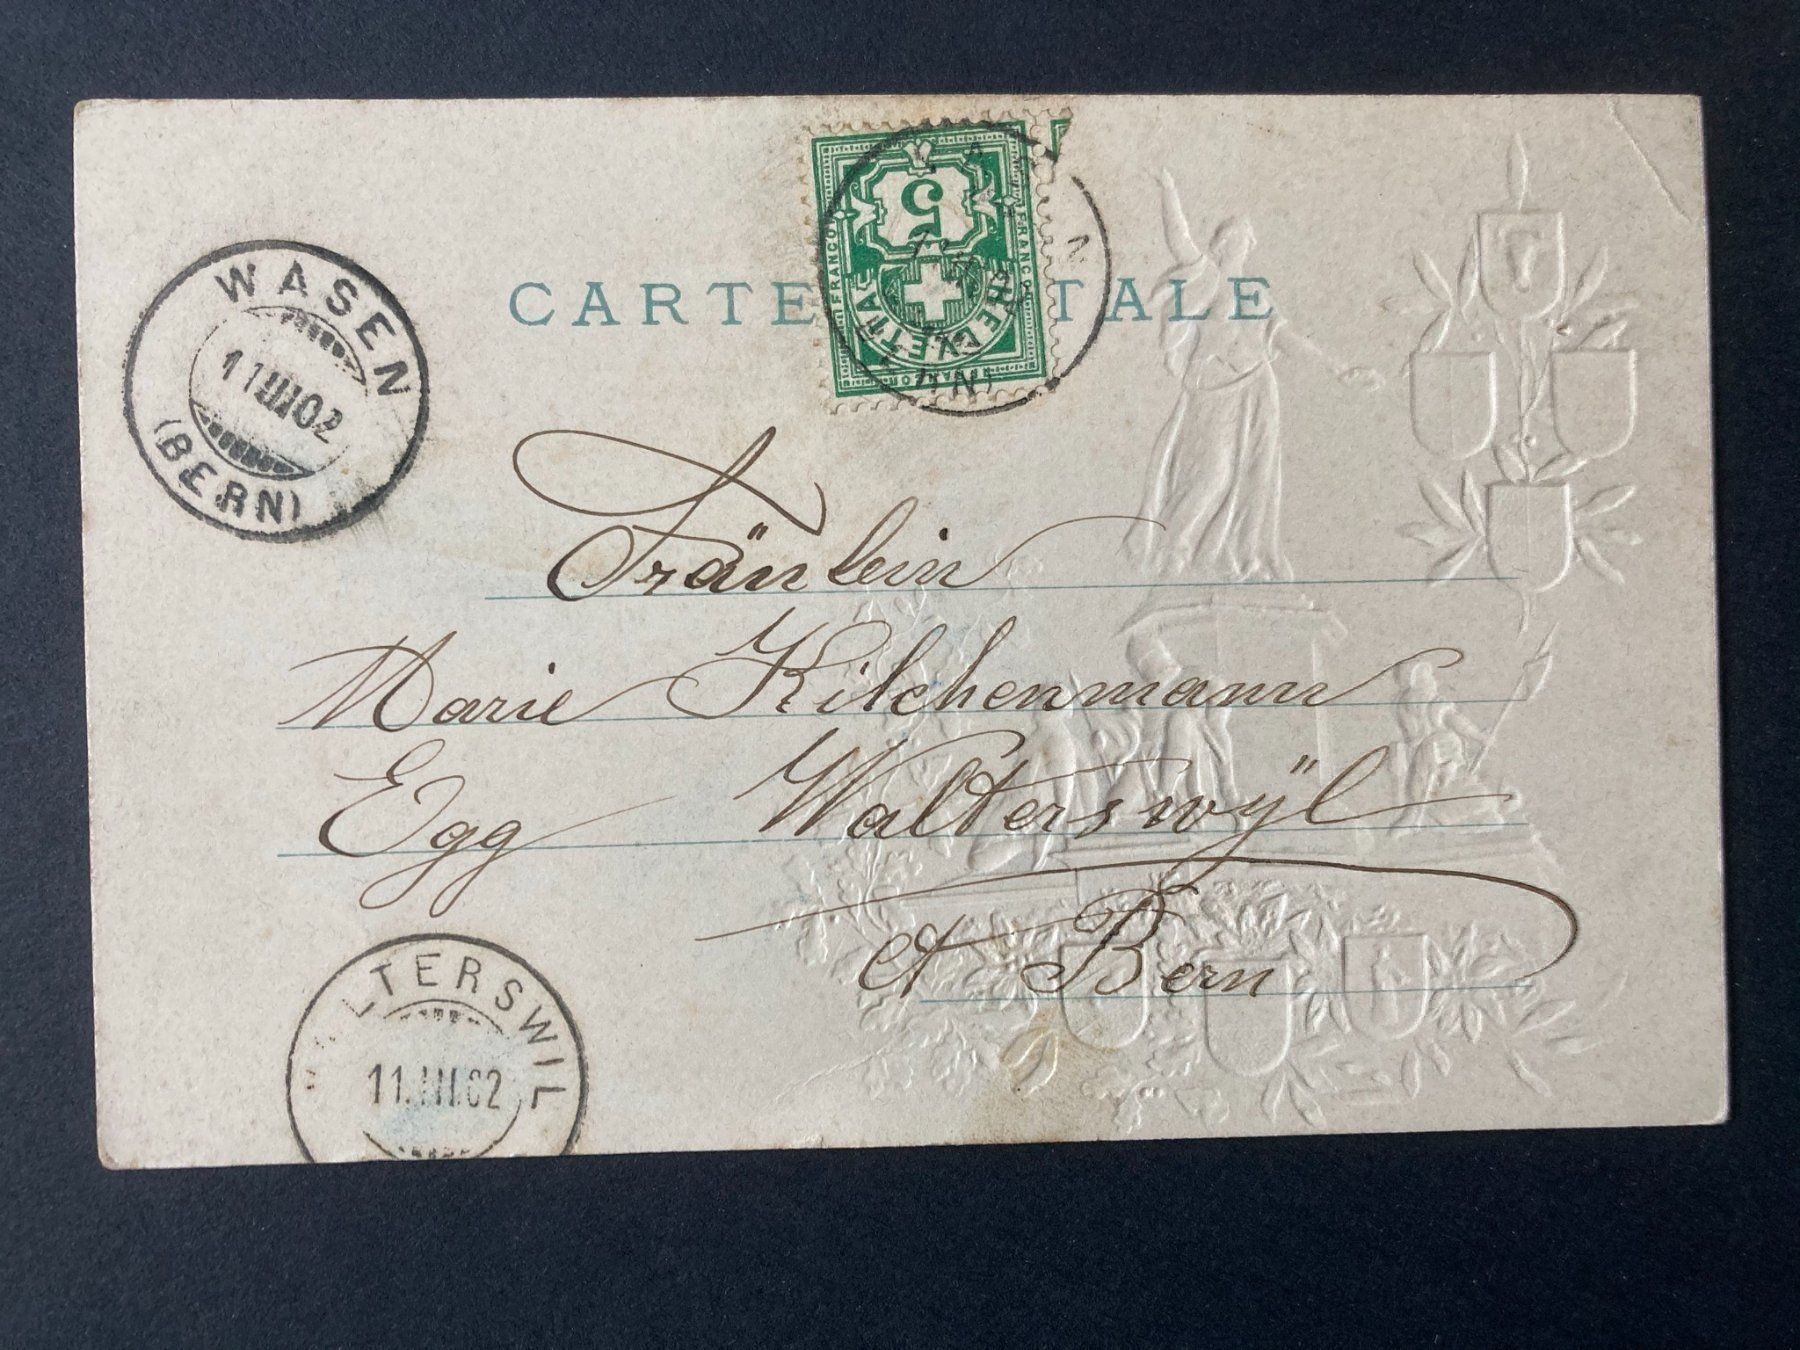 CARTE TALE
5
FRANCO
FRANCO
HELVETIA
FRANCO
WASEN
11 III 02
(BERN)
Fräulein
Marie Kilchenmann
Egg Walterswÿl
Ct Bern
WALTERSWIL
11.III.02